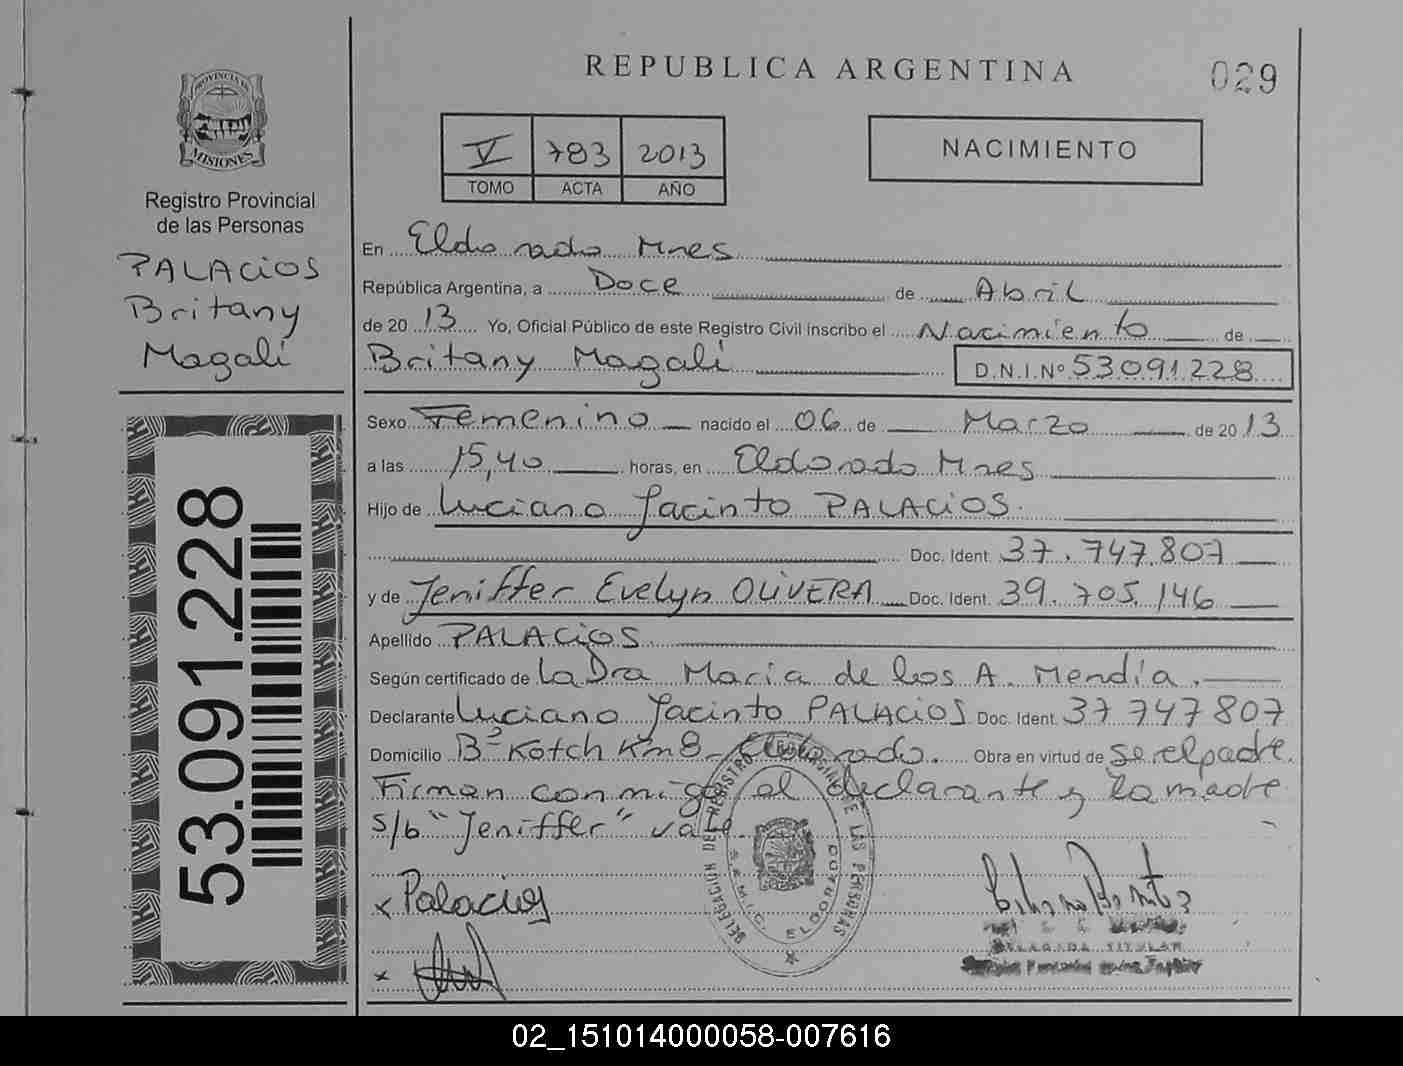 REPUBLICA ARGENTINA
029
PROVINCIA DE
MISIONES
Registro Provincial
de las Personas
PALACIOS
Britany
Magalí
53.091.228
V 783 2013
TOMO ACTA AÑO
NACIMIENTO
En Eldorado Mnes
República Argentina, a Doce de Abril
de 2013 Yo, Oficial Público de este Registro Civil inscribo el Nacimiento de
Britany Magalí D.N.I.Nº 53091228
Sexo Femenino nacido el 06 de Marzo de 2013
a las 15,40 horas, en Eldorado Mnes
Hijo de Luciano Jacinto PALACIOS
Doc. Ident. 37.747.807
y de Jeniffer Evelyn OLIVERA Doc. Ident. 39.705.146
Apellido PALACIOS
Según certificado de La Dra María de los A. Mendía.
Declarante Luciano Jacinto PALACIOS Doc. Ident. 37 747 807
Domicilio Bº Kotch Km 8 - Eldorado. Obra en virtud de Ser el padre.
Firman conmigo el declarante y la madre
s/b "Jeniffer" vale
DELEGACION DEL REGISTRO DE LAS PERSONAS
ELDORADO
x Palacios
x
DELEGADA TITULAR
02_151014000058-007616